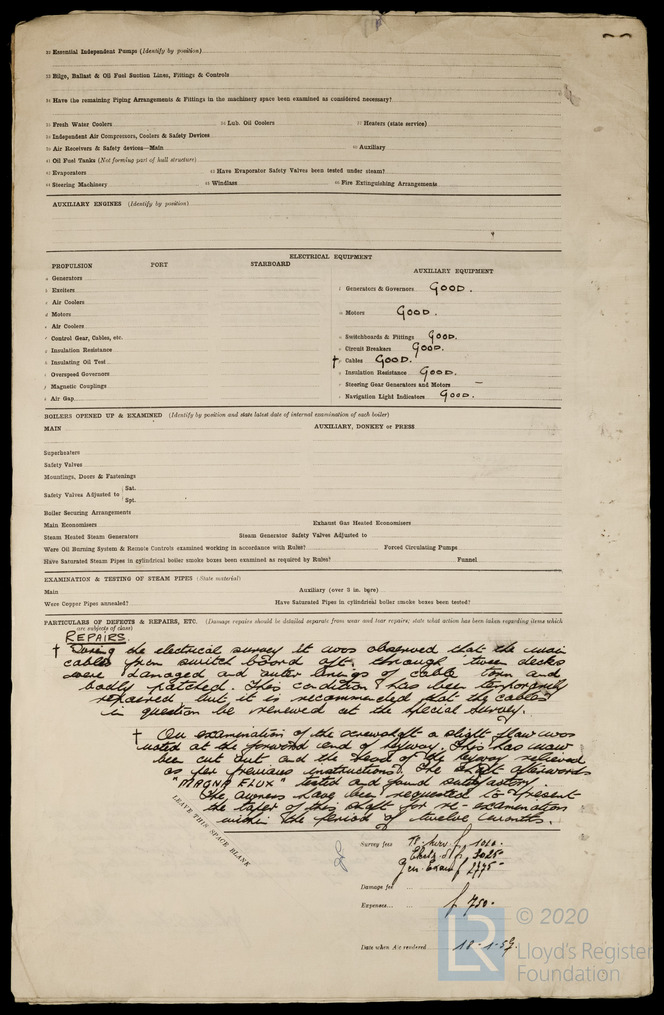 32 Essential Independent Pumps (Identify by position)
33 Bilge, Ballast & Oil Fuel Suction Lines, Fittings & Controls
34 Have the remaining Piping Arrangements & Fittings in the machinery space been examined as considered necessary?
35 Fresh Water Coolers 36 Lub. Oil Coolers 37 Heaters (state service)
38 Independent Air Compressors, Coolers & Safety Devices
39 Air Receivers & Safety devices—Main 40 Auxiliary
41 Oil Fuel Tanks (Not forming part of hull structure)
42 Evaporators 43 Have Evaporator Safety Valves been tested under steam?
44 Steering Machinery 45 Windlass 46 Fire Extinguishing Arrangements
AUXILIARY ENGINES (Identify by position)
ELECTRICAL EQUIPMENT
PROPULSION PORT STARBOARD
AUXILIARY EQUIPMENT
a Generators
b Exciters
c Air Coolers
d Motors
e Air Coolers
f Control Gear, Cables, etc.
g Insulation Resistance
h Insulating Oil Test
i Overspeed Governors
j Magnetic Couplings
k Air Gap
l Generators & Governors GOOD.
m Motors GOOD.
n Switchboards & Fittings GOOD.
o Circuit Breakers GOOD.
† p Cables GOOD.
q Insulation Resistance GOOD.
r Steering Gear Generators and Motors —
s Navigation Light Indicators GOOD.
BOILERS OPENED UP & EXAMINED (Identify by position and state latest date of internal examination of each boiler)
MAIN AUXILIARY, DONKEY or PRESS
Superheaters
Safety Valves
Mountings, Doors & Fastenings
Safety Valves Adjusted to { Sat.
Spt.
Boiler Securing Arrangements
Main Economisers Exhaust Gas Heated Economisers
Steam Heated Steam Generators Steam Generator Safety Valves Adjusted to
Were Oil Burning System & Remote Controls examined working in accordance with Rules? Forced Circulating Pumps
Have Saturated Steam Pipes in cylindrical boiler smoke boxes been examined as required by Rules? Funnel
EXAMINATION & TESTING OF STEAM PIPES (State material)
Main Auxiliary (over 3 in. bore)
Were Copper Pipes annealed? Have Saturated Pipes in cylindrical boiler smoke boxes been tested?
PARTICULARS OF DEFECTS & REPAIRS, ETC. (Damage repairs should be detailed separate from wear and tear repairs; state what action has been taken regarding items which
are subjects of class)
REPAIRS.
† During the electrical survey it was observed that the main
cables from switch board aft. through tween decks
were damaged and outer linings of cable torn and
badly patched. This condition has been temporarily
repaired, but it is recommended that the cables
in question be renewed at the Special Survey.
† On examination of the screwshaft a slight flaw was
noted at the forward end of keyway. This has now
been cut out and the head of the keyway relieved
as per previous instructions. The shaft afterwards
"MAGNA FLUX" tested and found satisfactory.
The owners have been requested to represent
the taper of this shaft for re-examination
within the period of twelve months.
LEAVE THIS SPACE BLANK
Survey fees
Damage fee
Expenses f 750.
Date when A/c rendered 18-1-57.
LR © 2020
Lloyd's Register
Foundation